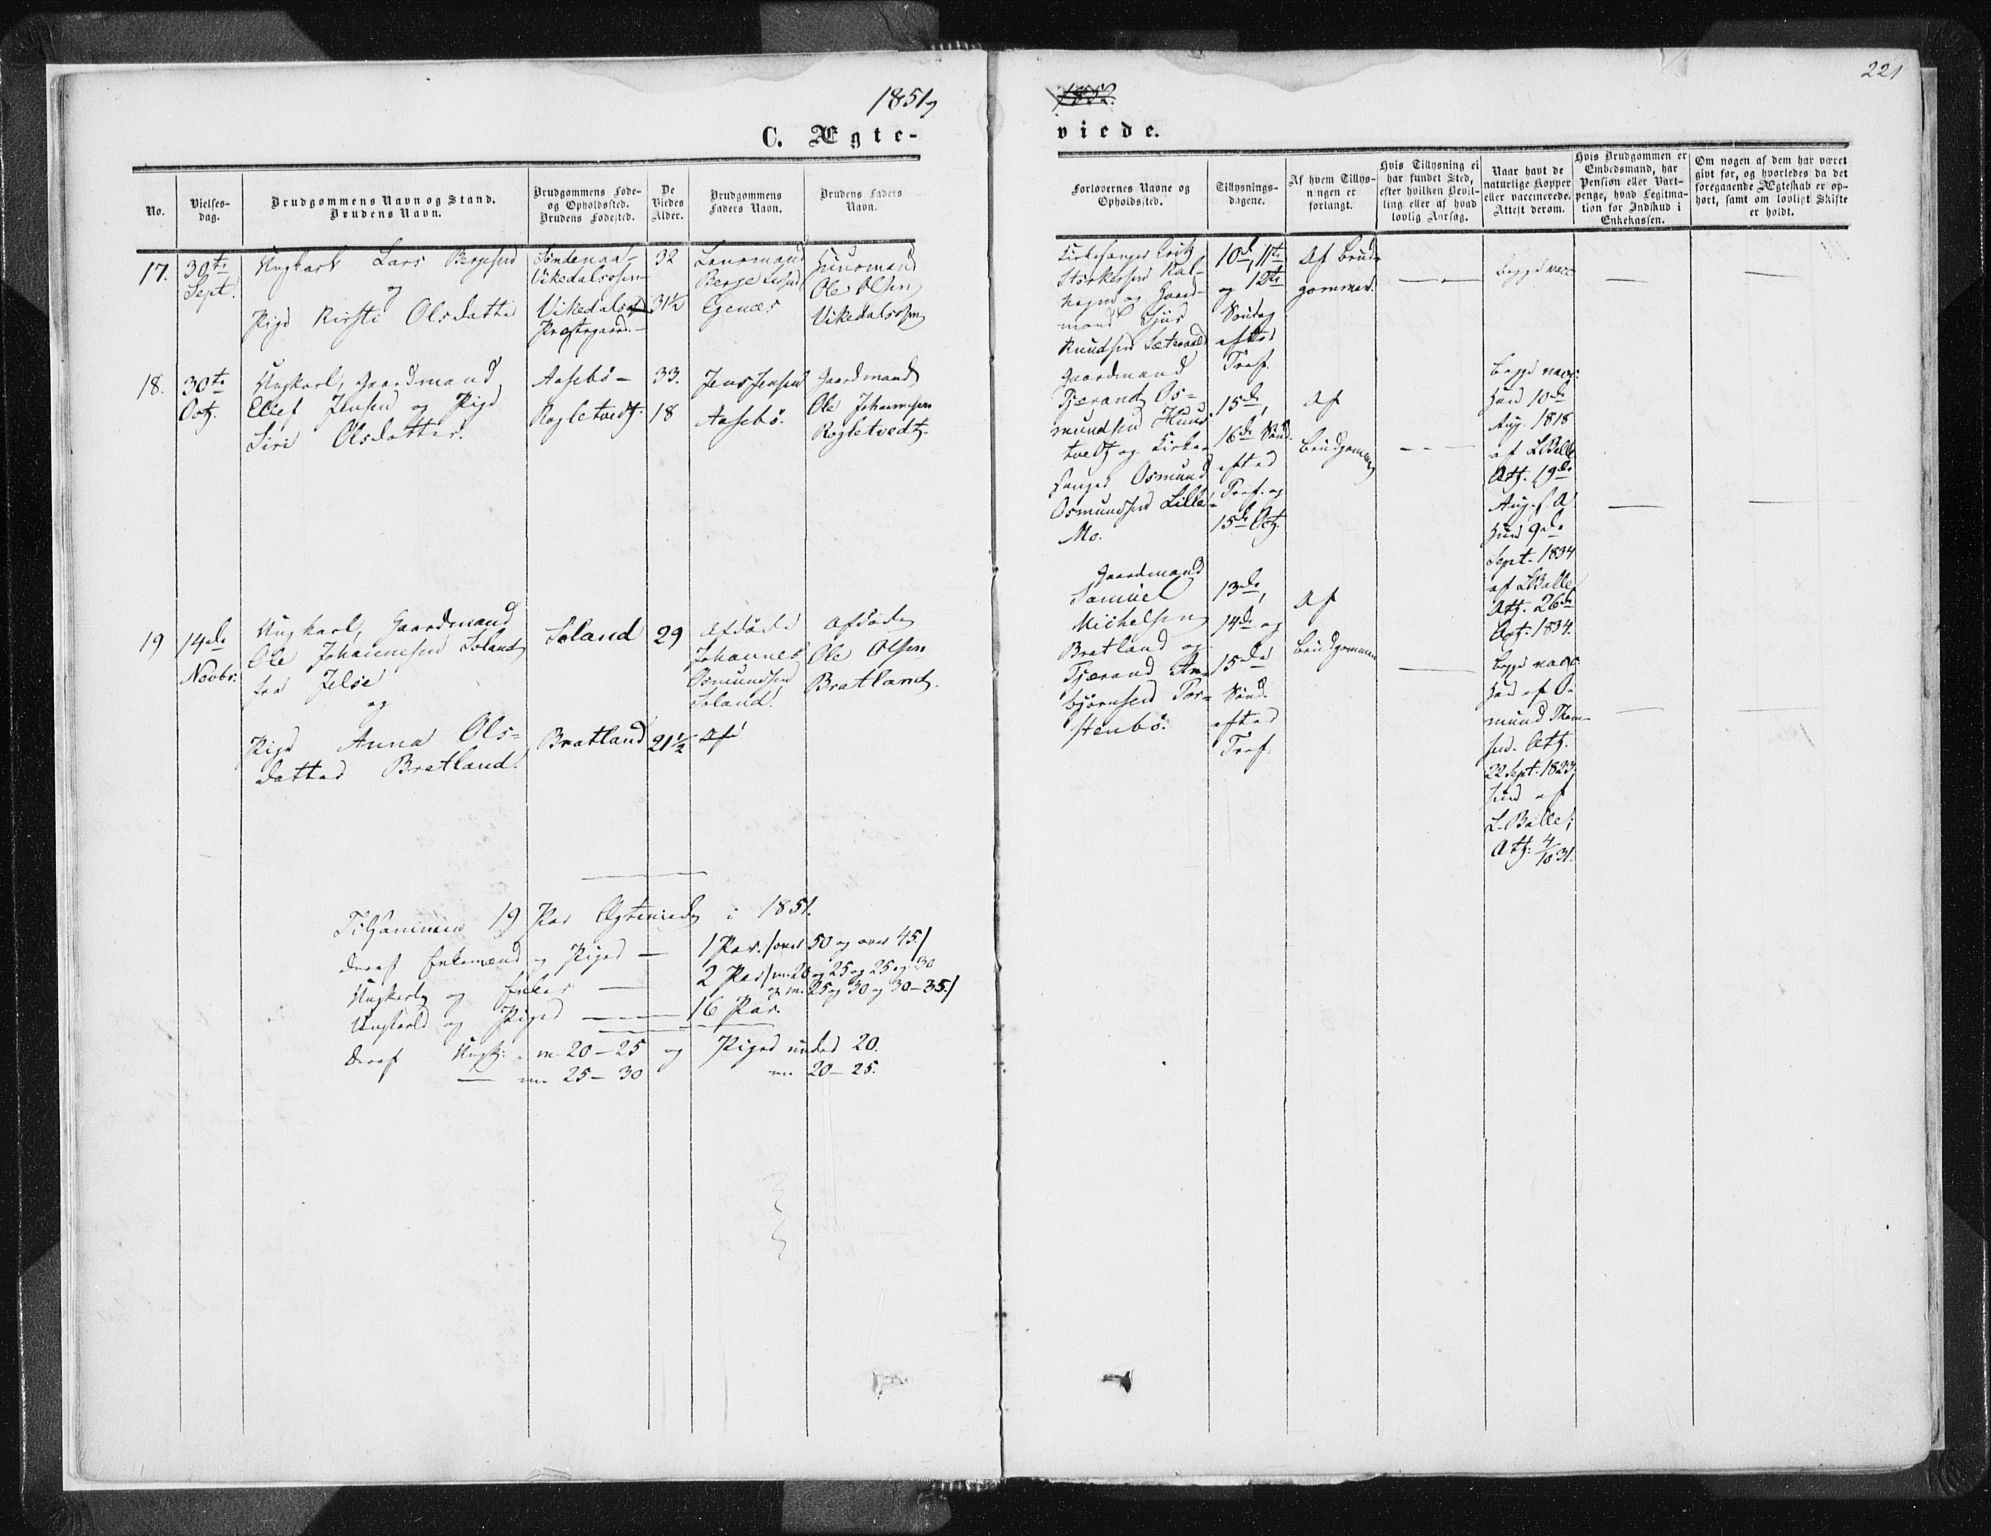 1851
1852.
221
C. Ægte-
viede.
No.
Vielses-
dag.
Brudgommens Navn og Stand.
Brudens Navn.
Brudgommens Føde-
og Opholdssted.
Brudens Fødested.
De
Viedes
Alder.
Brudgommens
Faders Navn.
Brudens Faders
Navn.
Forlovernes Navne og
Opholdssted.
Tillysnings-
dagene.
Af hvem Tillys-
ningen er
forlangt.
Hvis Tillysning ei
har fundet Sted,
efter hvilken Bevil-
ling eller af hvad
lovlig Aarsag.
Naar havt de
naturlige Kopper
eller vaccinerede.
Attest derom.
Hvis Brudgommen er
Embedsmand, har
Pension eller Vart-
penge, hvad Legitima-
tion for Indskud i
Enkekassen.
Om nogen af dem har været
givt før, og hvorledes da det
foregaaende Ægteskab er op-
hørt, samt om lovligt Skifte
er holdt.
17.
30te
Sept.
Ungkarl Lars Bergesen
og
Pige Kirsti Olsdatter
Vikedals
Præstegaard.
32
31½
Lensmand
Berge
Huusmand
Ole Olsen
Kirkesanger
og Gaard-
mand
Knudsen
10de, 11te
og 12te
Søndag
efter
Tref.
Af Brud-
gommen.
Begge vacc.
18.
30te
Oct.
Ungkarl, Gaardmand
Jensen og Pige
Siri Olsdatter.
Aasebø
Rogletvedt.
33.
18
Jens Jensen
Aasebø.
Gaardmand
Ole Johannesen
Rogletvedt.
Gaardmand
Tjerand Os-
mundsen
tvedt og Kirke-
sanger Osmund
Osmundsen Lille-
Mo.
15de,
16de Sønd.
efter
Tref. og
15de Oct.
Af
Brudgommen
Begge vacc:
Han 10de
Aug. 1818
af L. Balle
Att. 19de
Aug.
Hun 9de
Sept. 1834
af L. Balle
Att. 26de
Oct. 1834.
19
14de
Novbr.
Ungkarl, Gaardmand
Ole Johannesen Soland
fra Jelse
og
Pige Anna Ols-
datter Bratland.
Soland
Bratland
29
21½
Afdøde
Johannes
Osmundsen
Soland.
Af
Afdøde
Ole Olsen
Bratland.
Gaardmand
Samuel
Michelsen
Bratland og
Tjerand An-
bjørnsen Tor-
stenbø.
13de,
14de og
15de
Sønd.
efter
Tref.
Af
Brudgommen
Begge vacc:
Han af O-
mund Thom-
sen. Att.
22 Sept. 1823
Hun af
L. Balle,
Att. 4/10 31.
Tilsammen 19 Par Ægteviede i 1851.
Deraf Enkemænd og Piger — 1 Par. /over 50 og over 45./
Ungkarle og Enker — 2 Par /m. 20 og 25 og 25 og 30
og m. 25 og 30 og 30-35./
Ungkarle og Piger — 16 Par.
Deraf Ungk: m. 20-25 og Piger under 20.
— m. 25-30 m. 20-25.